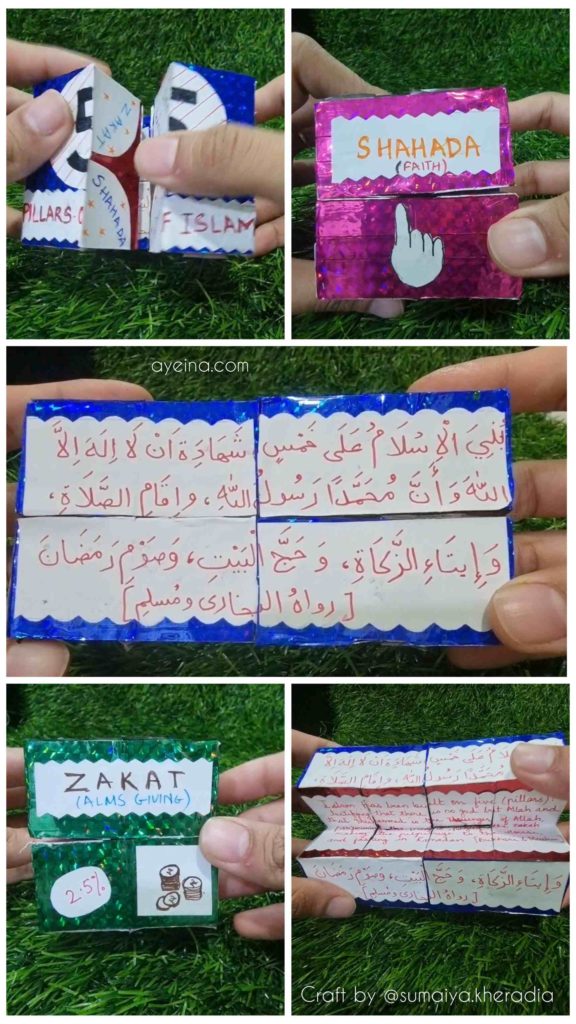 5
ZAKAT
SHAHADA
PILLARS O
F ISLAM
SHAHADA
(FAITH)
ayeina.com
بُنِيَ الْإِسْلَامُ عَلَى خَمْسٍ شَهَادَةِ اَنْ لَا اِلَهَ اِلَّا
اللّٰهَ وَأَنَّ مُحَمَّدًا رَسُولُ اللّٰهِ، وَاِقَامِ الصَّلَاةِ،
وَإِيتَاءِ الزَّكَاةِ، وَحَجِّ الْبَيْتِ، وَصَوْمِ رَمَضَانَ
[رواهُ البخاری ومُسلِم]
ZAKAT
(ALMS GIVING)
2.5%
عَلَى خَمْسٍ شَهَادَةِ اَنْ لَا اِلَهَ اِلَّا
مُحَمَّدًا رَسُولُ اللّٰهِ، وَاِقَامِ الصَّلَاةِ،
has been built on five (pillars):
that there is no god but Allah and
Messenger of Allah,
وَإِيتَاءِ الزَّكَاةِ، وَحَجِّ الْبَيْتِ، وَصَوْمِ رَمَضَانَ
[رواهُ البخاری ومُسلِم]
Craft by @sumaiya.kheradia